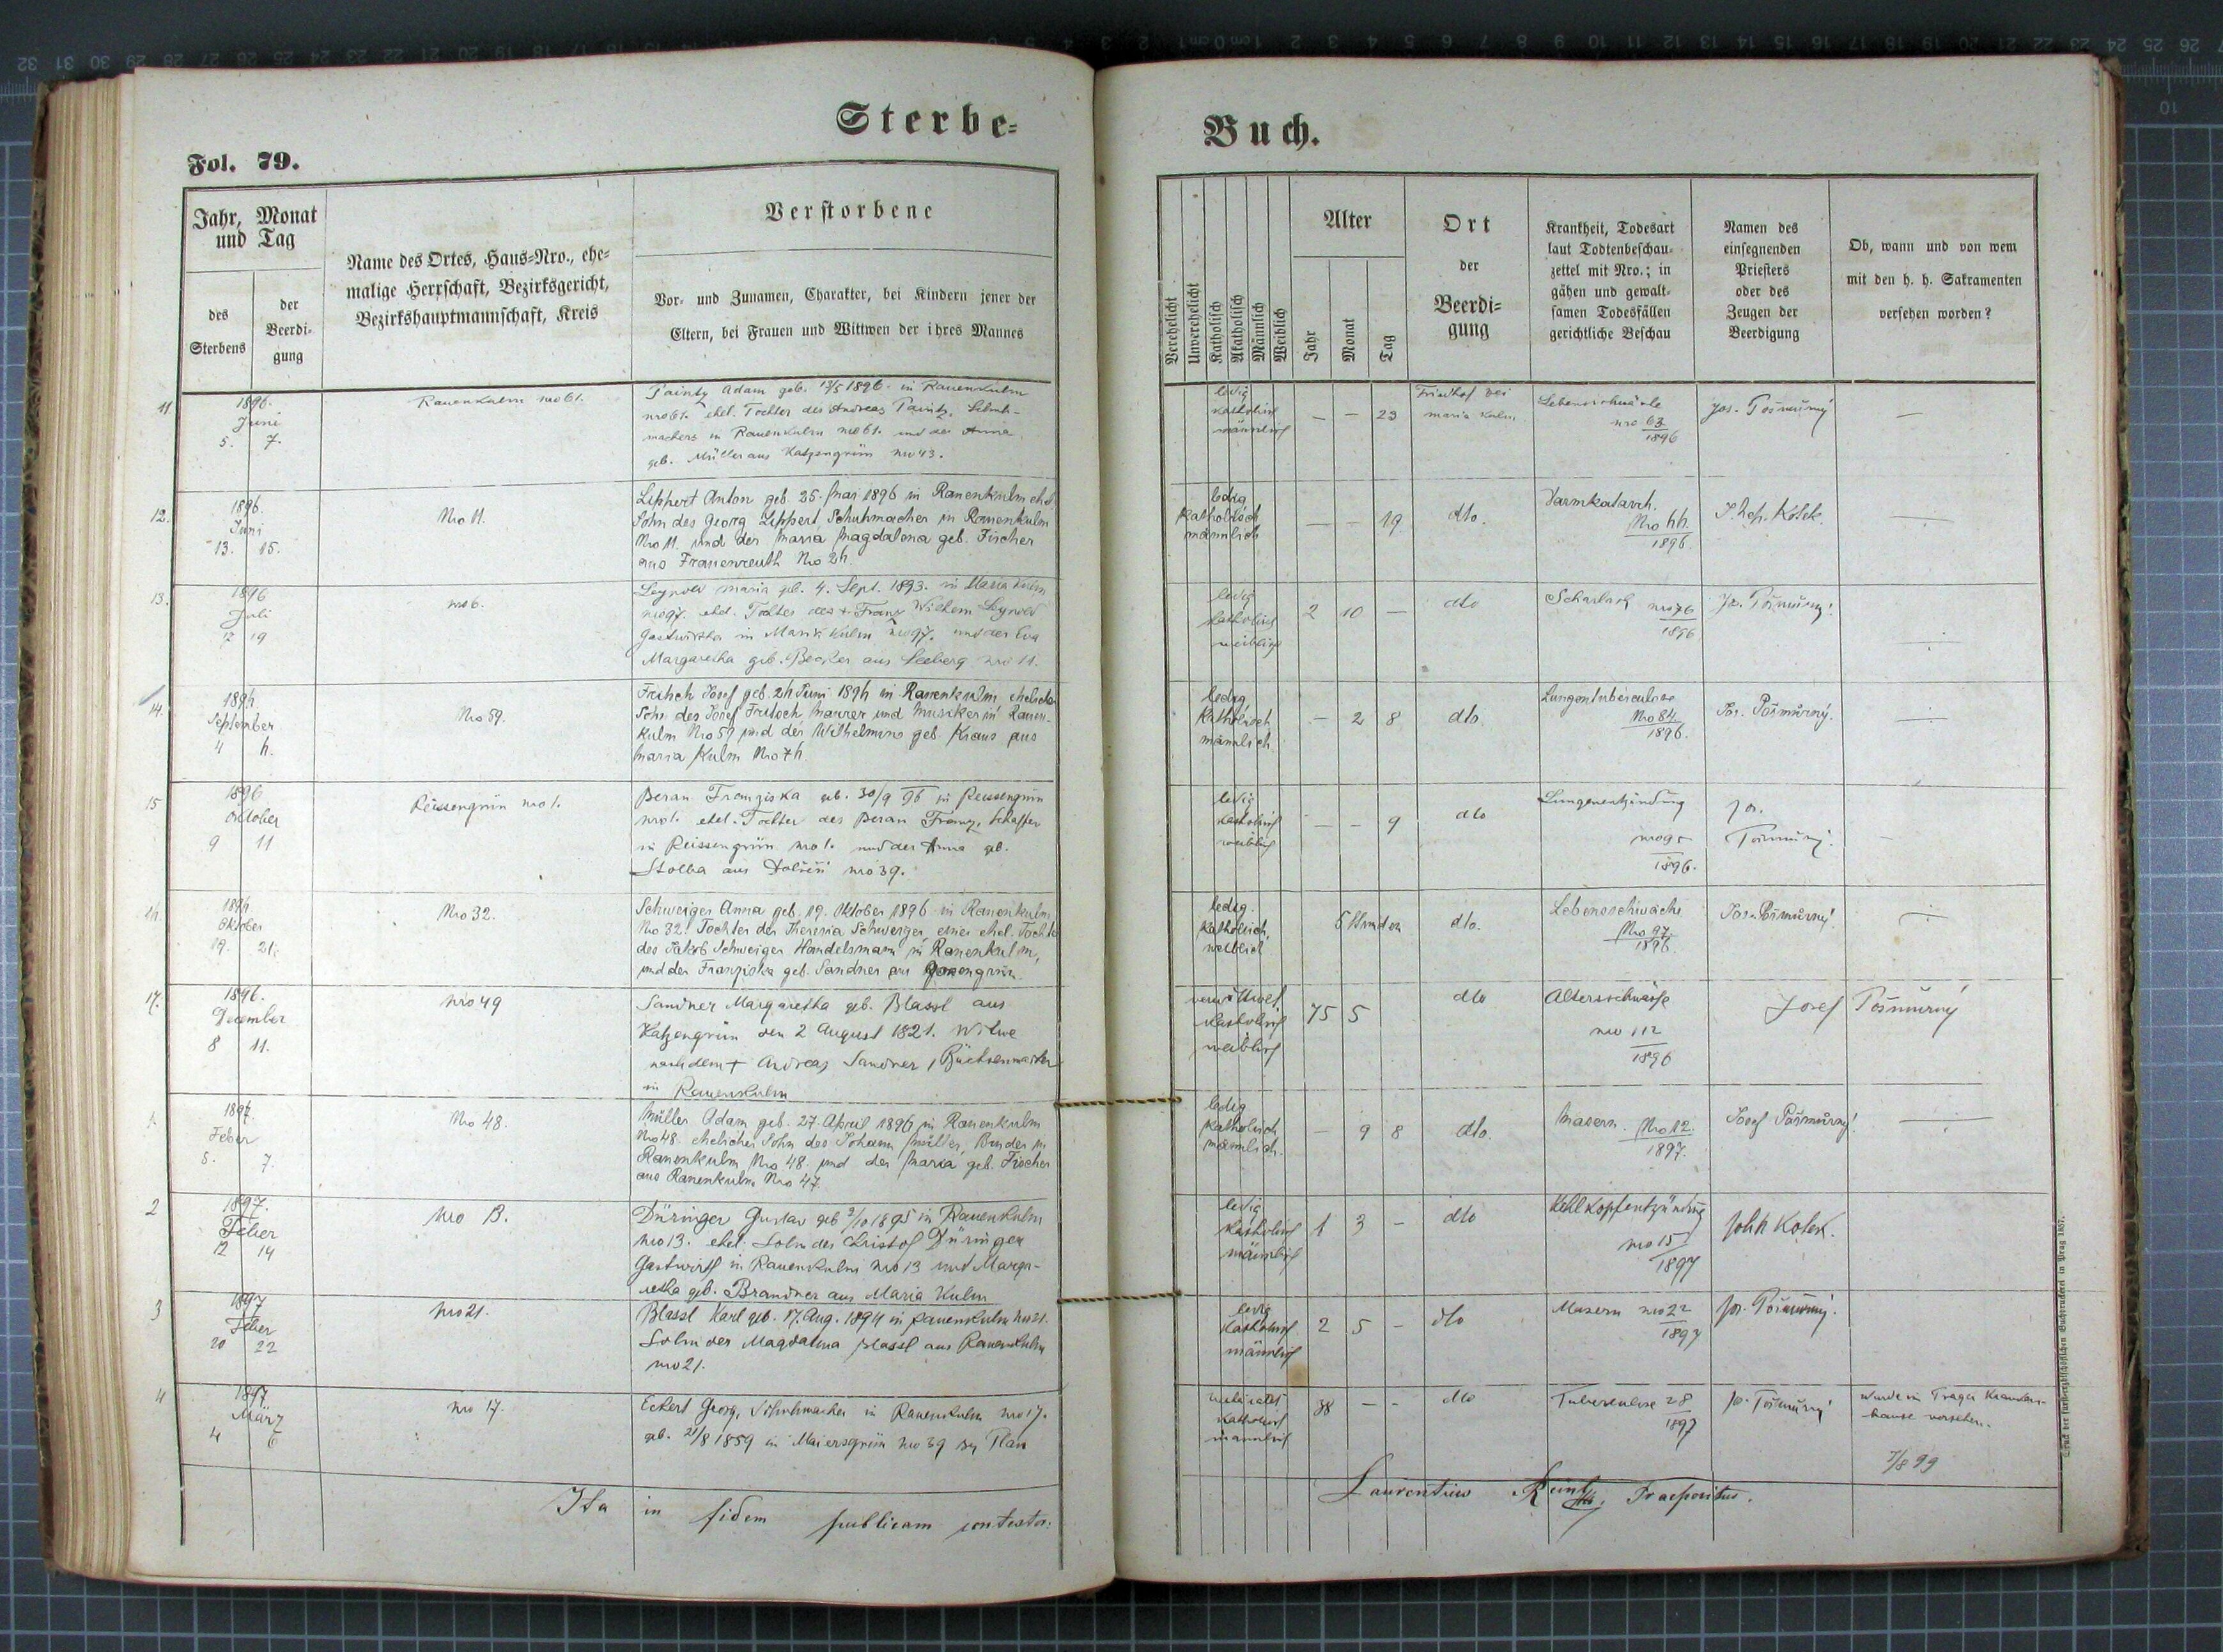 Sterbe-
Buch.
Fol. 79.
Jahr, Monat
und Tag
des
Sterbens
der
Beerdi-
gung
Name des Ortes, Haus-Nro., ehe-
malige Herrschaft, Bezirksgericht,
Bezirkshauptmannschaft, Kreis
Verstorbene
Vor- und Zunamen, Charakter, bei Kindern jener der
Eltern, bei Frauen und Wittwen der ihres Mannes
Verehelicht
Unverehelicht
Katholisch
Akatholisch
Männlich
Weiblich
Alter
Jahr
Monat
Tag
Ort
der
Beerdi-
gung
Krankheit, Todesart
laut Todtenbeschau-
zettel mit Nro.; in
gähen und gewalt-
samen Todesfällen
gerichtliche Beschau
Namen des
einsegnenden
Priesters
oder des
Zeugen der
Beerdigung
Ob, wann und von wem
mit den h. h. Sakramenten
versehen worden?
11
1896.
Juni
5. 7.
Rauenkulm nro 61.
Adam geb. 13/5 1896. in Rauenkulm
nro 61. ehel. Tochter des Andreas
machers in Rauenkulm nro 61. und der Anna
geb. Müller aus Katzengrün nro 43.
ledig
katholisch
männlich
— — 23
Friedhof bei
Maria Kulm
Lebensschwäche
nro 63
1896
Jos. Pošmůrný
—
12.
1896.
Juni
13. 15.
Nro 11.
Lippert Anton geb. 25. Mai 1896 in Rauenkulm ehel.
Sohn des Georg Lippert, Schuhmacher in Rauenkulm
Nro 11. und der Maria Magdalena geb. Fischer
aus Frauenreuth Nro 24.
ledig
katholisch
männlich
— — 19
dto.
Darmkatarrh.
Nro 66.
1896.
Kolek.
13.
1896
Juli
17 19
nro 6.
Leynold Maria gb. 4. Sept. 1893. in Maria Kulm
nro 97. ehel. Tochter des + Franz Wilhelm Leynold
Gastwirths in Maria Kulm nro 97. und der Eva
Margaretha geb. Becker aus Seeberg nro 11.
ledig
katholisch
weiblich
2 10 —
dto
Scharlach nro 76
1896
Jos. Pošmůrný
14.
1896.
September
4 6.
Nro 59.
Fritsch Josef geb. 26 Juni 1896 in Rauenkulm ehelicher
Sohn des Josef Fritsch, Maurer und Musiker in Rauen-
kulm Nro 59 und der Wilhelmine geb. Kraus aus
Maria Kulm Nro 76.
ledig
katholisch
männlich
— 2 8
dto.
Lungentuberculose
Nro 84
1896.
Jos. Pošmůrný.
15
1896
Oktober
9 11
Reissengrün nro 1.
Beran Franziska geb. 30/9 96 in Reissengrün
nro 1. ehel. Tochter des Beran Franz, Schaffer
in Reissengrün nro 1. und der Anna gb.
Stolba aus nro 39.
ledig
katholisch
weiblich
— — 9
dto
Lungenentzündung
nro 95
1896.
Jos.
Pošmůrný.
16.
1896.
Oktober
19. 21.
Nro 32.
Schweiger Anna geb. 19. Oktober 1896 in Rauenkulm
Nro 32. Tochter der Theresia Schweiger, einer ehel. Tochter
des Jakob Schweiger Handelsmann in Rauenkulm,
und der Franziska geb. Sandner aus
ledig.
katholisch,
weiblich
Stunden
dto.
Lebensschwäche
Nro 97.
1896.
Jos. Pošmůrný
17.
1896.
December
8 11.
nro 49
Sandner Margaretha geb. Blassl aus
Katzengrün den 2 August 1821. Witwe
nach dem + Andreas Sandner, Büchsenmacher
in Rauenkulm
verwittwet
katholisch
weiblich
75 5
dto
Altersschwäche
nro 112
1896
Josef Pošmůrný
1.
1897.
Feber
5. 7.
Nro 48.
Müller Adam geb. 27. April 1896 in Rauenkulm
Nro 48. ehelicher Sohn des Johann Müller, Binder in
Rauenkulm Nro 48. und der Maria geb. Fischer
aus Rauenkulm Nro 47.
ledig
katholisch
männlich.
— 9 8
dto.
Masern. Nro 12.
1897.
Josef Pošmůrný
2
1897.
Feber
12 14
nro 13.
Düringer Gustav geb 9/10 1895 in Rauenkulm
nro 13. ehel. Sohn des Christof Düringer
Gastwirth in Rauenkulm nro 13 und Marga-
retha geb. Brandner aus Maria Kulm
ledig
katholisch
männlich
1 3 -
dto
Kehlkopfentzündung
nro 15
1897
Kolek.
3
1897
Feber
20 22
nro 21.
Blassl Karl geb. 17. Aug. 1894 in Rauenkulm nro 21.
Sohn der Magdalena Blassl aus Rauenkulm
nro 21.
ledig
katholisch
männlich
2 5 -
dto
Masern nro 22
1897
Jos. Pošmůrný.
4
1897.
März
4 6
nro 17.
Eckert Georg, Schuhmacher in Rauenkulm nro 17.
geb. 21/8 1859 in Maiersgrün nro 39 Plan
katholisch
männlich
38 - -
dto
Tuberculose 28
1897
Jos. Pošmůrný
wurde im Prager Kranken-
hause versehen.
7/8 99
Ita in fidem publicam contestor:
Laurentius Praepositus.
Druck der fürsterzbischöflichen Buchdruckerei in Prag 1857.